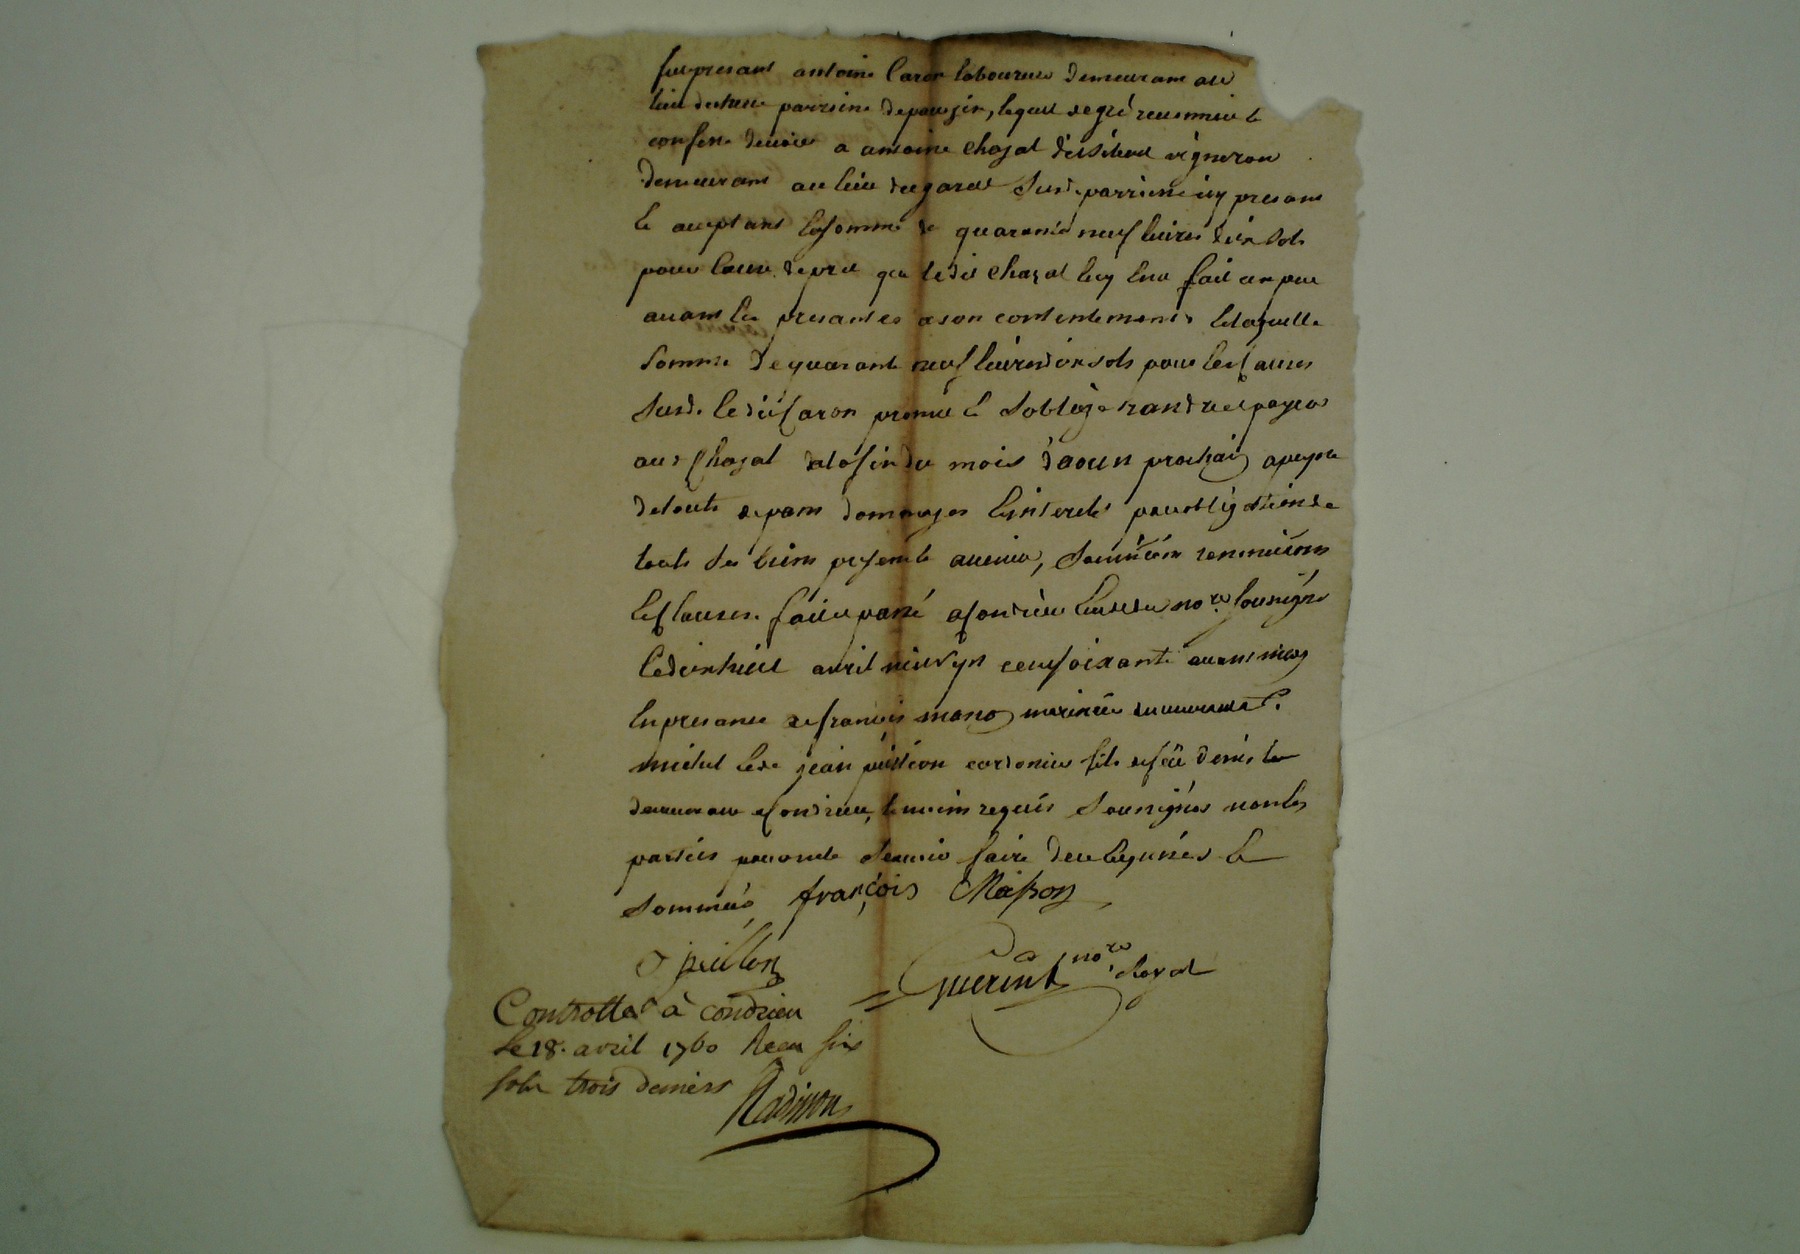 fut presant antoine Caron laboureur demeurant au
lieu de parroisse depavezin, lequel de gré reconnu et
confesse devoir a antoine Chazal vigneron
demeurant au lieu de garat Susd. parroisse icy present
et aceptant la somme de quarante neuf livres dix sols
pour cause de pret que ledit Chazal luy en a fait un peu
avant les presantes a son contentement, et laquelle
somme de quarante neuf livres dix sols pour les causes
Susd. ledit Caron promet et s'oblige randre et payer
aud. Chazal a la fin du mois d'aoust prochain apeyne
de touts depans domages et interets par obligation de
touts ses biens presents et avenir, soumission renonciations
et clauses. fait et passé a Condrieu etude du no.re soussigné
le dix huit avril mil sept cent soixante avant midy
en presance de françois marinier demeurant a St.
michel et de jean cordonier fils de feu denis le
demeurant a Condrieu, temoins requis soussignés non les
parties pour ne le scavoir faire de ce enquises et
sommées françois Masson
J pititon
Guerin no.re Royal
Controllé à condrieu
le 18. avril 1760 Recu six
sols trois deniers
Radisson